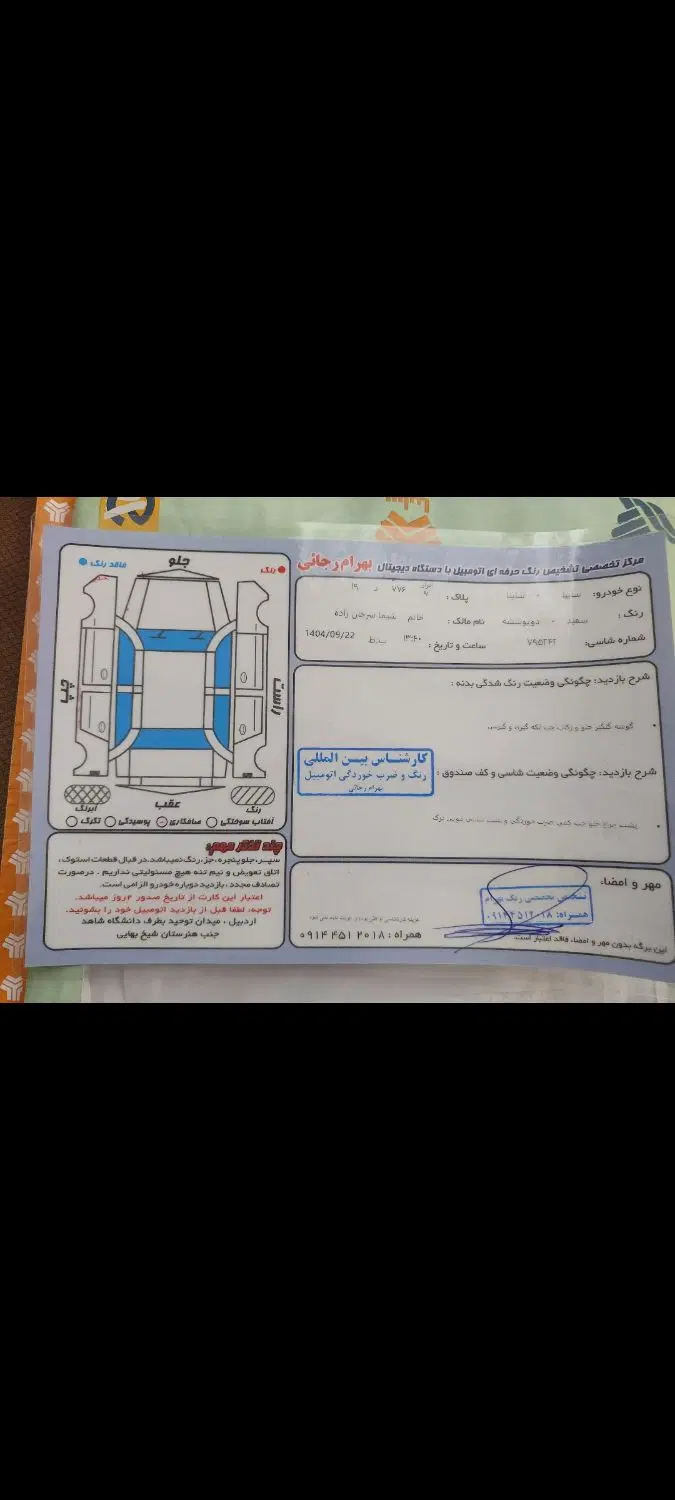 مرکز تخصصی تشخیص رنگ حرفه ای اتومبیل با دستگاه دیجیتال بهرام رجائی
نوع خودرو: سایپا - ساینا
پلاک: ایران ۷۷۶ د ۱۹
رنگ: سفید - دوپوششه
نام مالک: خانم شیما سرخان زاده
شماره شاسی: ۷۹۵۲۴۲
ساعت و تاریخ: ۱۳:۴۰ ب.ظ 1404/09/22
شرح بازدید: چگونگی وضعیت رنگ شدگی بدنه:
گوشه گلگیر جلو و رکاب چپ لکه گیری و
کارشناس بین المللی
رنگ و ضرب خوردگی اتومبیل
بهرام رجائی
شرح بازدید: چگونگی وضعیت شاسی و کف صندوق:
پشت چراغ جلو چپ کمی ضرب خوردگی و
مهر و امضاء:
تشخیص تخصصی رنگ بهرام
همراه: ۰۹۱۴۴۵۱۲۰۱۸
همراه: ۰۹۱۴ ۴۵۱ ۲۰۱۸
این برگه بدون مهر و امضاء، فاقد اعتبار است.
رنگ
فاقد رنگ
جلو
چپ
راست
عقب
رنگ
آبرنگ
آفتاب سوختگی صافکاری پوسیدگی تگرگ
چند تذکر مهم:
سپر، جلوپنجره، جز، رنگ نمیباشد. در قبال قطعات استوک،
اتاق تعویض و نیم تنه هیچ مسئولیتی نداریم . درصورت
تصادف مجدد، بازدید دوباره خودرو الزامی است.
اعتبار این کارت از تاریخ صدور ۲روز میباشد.
توجه: لطفا قبل از بازدید اتومبیل خود را بشوئید.
اردبیل ، میدان توحید بطرف دانشگاه شاهد
جنب هنرستان شیخ بهایی